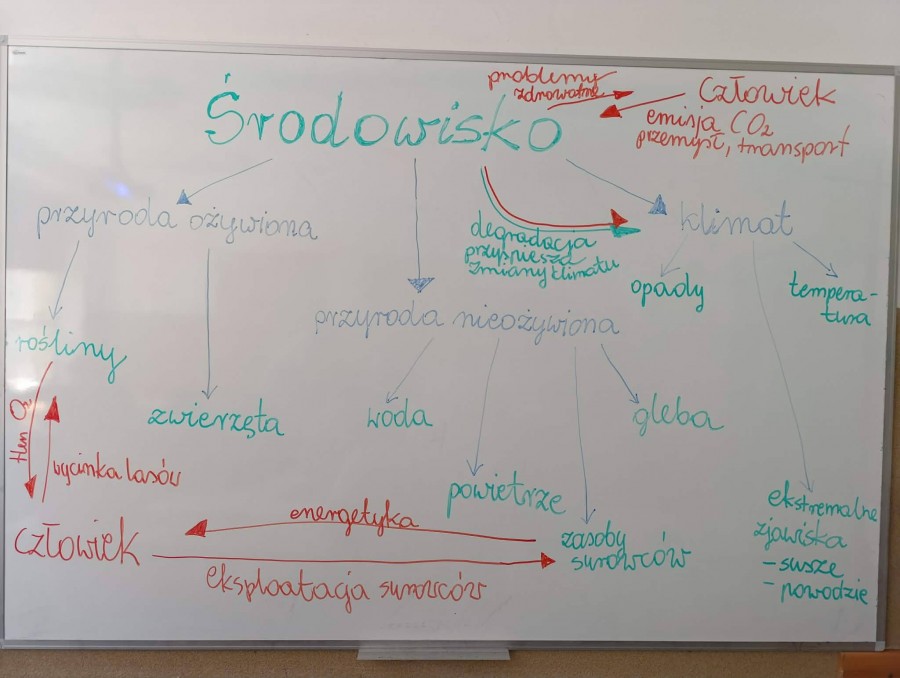 Środowisko
problemy
zdrowotne
Człowiek
emisja CO₂
przemysł, transport
przyroda ożywiona
degradacja
przyśpiesza
zmiany klimatu
klimat
opady
tempera-
tura
przyroda nieożywiona
rośliny
zwierzęta
woda
gleba
tlen O₂
wycinka lasów
powietrze
ekstremalne
zjawiska
- susze
- powodzie
człowiek
energetyka
eksploatacja surowców
zasoby
surowców